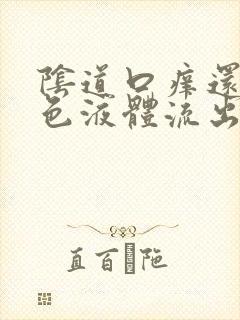 陰道口癢還
色液體流出
直百陁